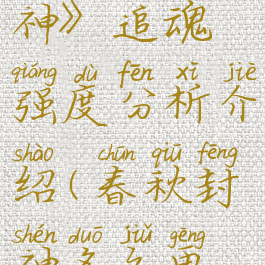 神》追魂
qiáng dù fēn xī jiè
强度分析介
shào chūn qiū fēng
绍(春秋封
shén duō jiǔ gēng
神多久更